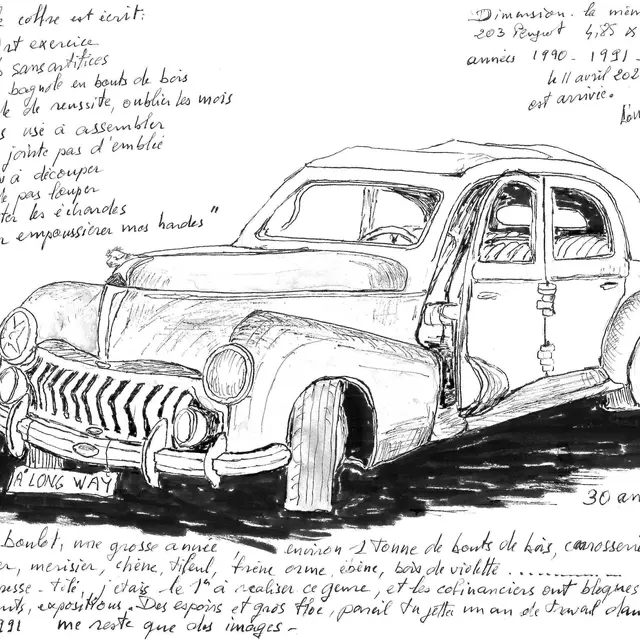 coffre est écrit:
exercice
sans artifices
bagnole en bouts de bois
de reussite, oublier les mois
usé à assembler
jointe pas d'emblée
à découper
pas louper
les échardes
empoussierer mes hardes"
Dimension. la mêm
203 Peugeot 4,85 x
années 1990 - 1991 -
le 11 avril 202
est arrivée.
A LONG WAY
30 an
boulot, une grosse année environ 1 tonne de bouts de bois, carrosseri
merisier, chêne, tilleul, frêne orme, ébène, bois de violette ..........
j'étais le 1er à realiser ce genre, et les cofinanciers ont bloqués
expositions. Des espoirs et gros floc, pareil tu jettes un an de travail dan
991 me reste que des images -